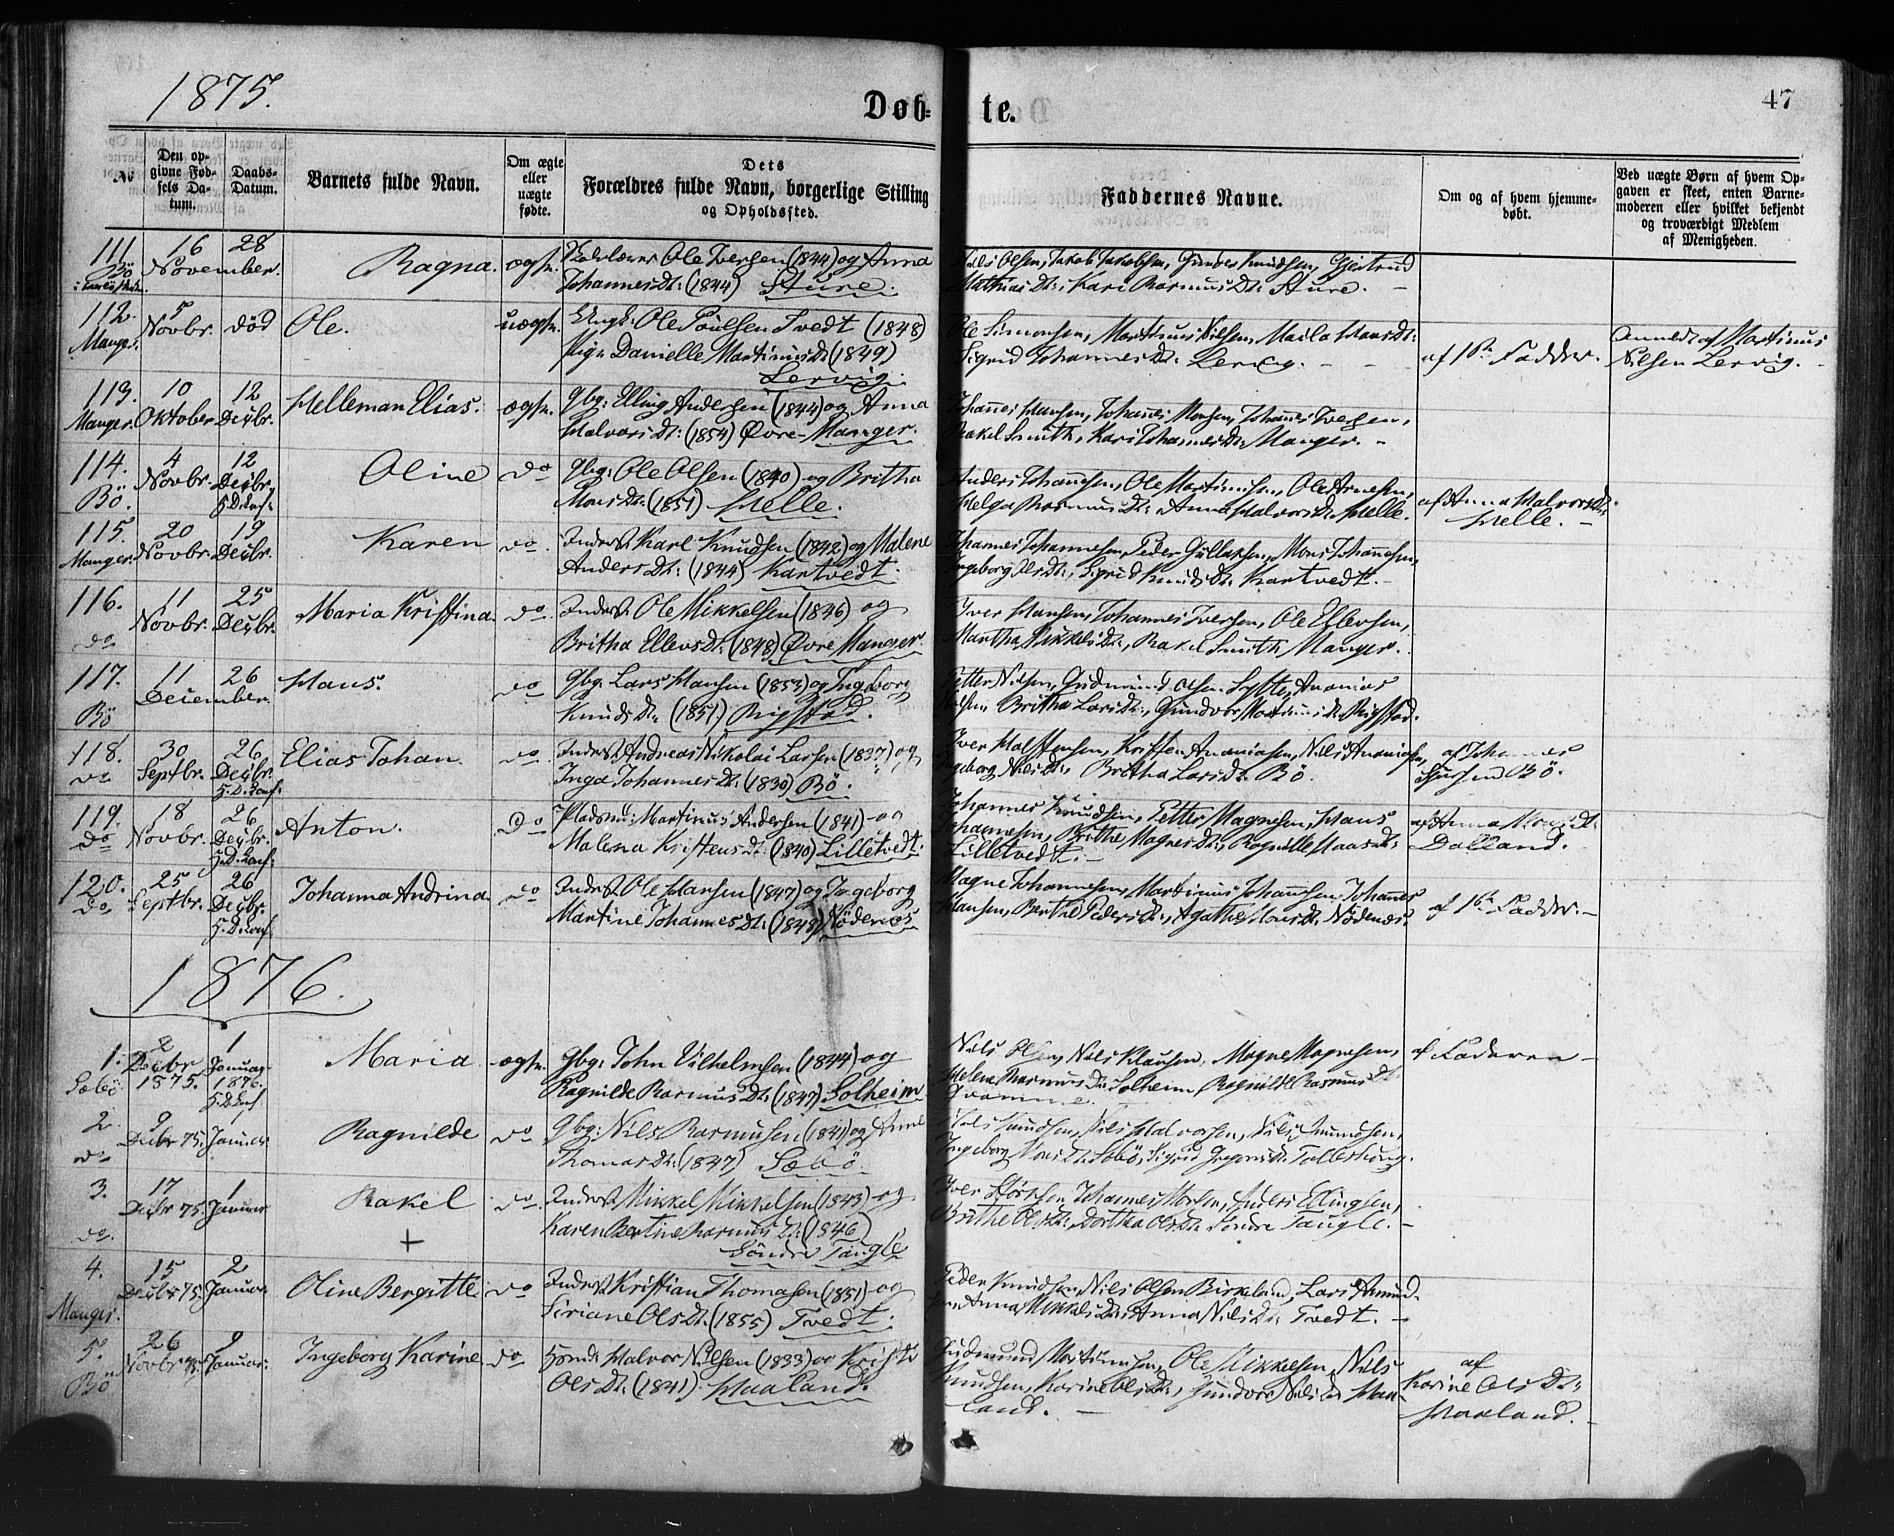 1875.
Døb- te.
47
№
Den op-
givne Fød-
sels Da-
tum.
Daabs-
Datum.
Barnets fulde Navn.
Om ægte
eller
uægte
fødte.
Dets
Forældres fulde Navn, borgerlige Stilling
og Opholdssted.
Faddernes Navne.
Om og af hvem hjemme-
døbt.
Ved uægte Børn af hvem Op-
gaven er skeet, enten Barne-
moderen eller hvilket bekjendt
og troværdigt Medlem
af Menigheden.
111. 16 28
Bö November. Ragna. ægte. Ole Iversen (1844) og Anna
Johannes Dt: (1844) Sture.
Niels Olsen, Jakob Jakobsen, Knudsen, Gjertrud
Mathias Dt:, Kari Rasmus Dt: Sture.
112. 5
Manger. Novbr. död Ole. uægte. Ungk: Ole Poulsen Tvedt (1848)
Pige Danielle Martinus Dt (1849)
Lervig.
Ole Simonsen, Martinus Nilsen,
Sigrid Johannes Dt: Lervig.
af 1ste Fadder.
Anmeldt af Martinus
Nilsen Lervig.
113. 10 12
Manger. Oktober Decbr. Helleman Elias. ægte. Gbg: Elling Andersen (1844) og Anna
Halvors Dt: (1854) Øvre-Manger.
Johannes Hansen, Johannes Monsen, Johannes Iversen,
Rakel Smith, Kari Johannes Dt: Manger.
114. 4 12
Bö. Novbr. Decbr. Oline do Gbg: Ole Olsen (1840) og Britha
Mons Dt: (1851) Helle.
Anders Johannesen, Ole Martinusen, Ole Arnesen,
Helga Rasmus Dt:, Anna Halvors Dt: Helle.
af Anna Halvors Dt:
Helle.
115. 20 19
Manger. Novbr. Decbr. Karen do. Inderst. Karl Knudsen (1842) og Malene
Anders Dt: (1844) Kartvedt.
Johannes Johannesen, Peder Gullaksen, Mons Johannesen,
Ingeborg Ols Dt:, Sigrid Knuds Dt: Kartvedt.
116. 11 25
do Novbr. Decbr. Maria Kristina. do. Inderst. Ole Mikkelsen (1846) og
Britha Ellevs Dt: (1848) Øvre Manger.
Iver Hansen, Johannes Iversen, Ole Ellevsen,
Martha Mikkels Dt:, Rakel Smith Manger.
117. 11 26
Bö December. Hans. do Gbg: Lars Hansen (1853) og Ingeborg
Knuds Dt: (1851) Rigstad.
Petter Nilsen, Gudmund Olsen Ananias
Nilsen, Britha Lars Dt:, Gundvor Martinus Dt: Rigstad.
118. 30 26
do Septbr. Decbr. Elias Johan. do. Inderst. Andreas Nikolai Larsen (1837) og
Inga Johannes Dt: (1839) Bö.
Iver Kristen Ananiasen, Nils Ananiasen,
Ingeborg Nils Dt:, Britha Lars Dt: Bö.
af Johannes
Sjursen Bö.
119. 18 26
Do Novbr. Decbr. Anton. Do Pladsm: Martinus Andersen (1841) og
Malena Kristens Dt: (1840) Lilletvedt.
Johannes Knudsen, Petter Magnesen, Hans
Johannesen, Brithe Magnes Dt:, Ragnilde Dt:
Lilletvedt.
af Anna Dt:
Dalland.
120. 25 26
Do. Septbr. Decbr. Johanna Andrina do Inderst. Ole Hansen (1847) og Ingeborg
Martine Johannes Dt: (1848) Nödenes.
Magne Johannesen, Martinus Johannesen, Johannes
Hansen, Berthe Peders Dt:, Agathe Mons Dt: Nödenes.
af 1ste Fadder.
1876.
1. 2 1
Sæbö Decbr 1875. Januar 1876. Maria ægte. Gbg: John Vilhelmsen (1844) og
Ragnilde Rasmus Dt: (1847) Solheim.
Nils Olsen, Nils Klausen, Magne Magnesen,
Helene Rasmus Dt: Solheim, Ragnilde Rasmus Dt:
Kvamme.
af Faderen
2. 9
do Decbr 75. Januar. Ragnilde do Gbg: Nils Rasmusen (1841) og Anne
Thomas Dt: (1847) Sæbö.
Nils Halvorsen, Nils
Ingeborg Mons Dt: Sæbö, Sigrid
3. 17 1
do. Decbr 75. Januar Rakel do. Inderst. Mikkel Mikkelsen (1843) og
+ Karen Bertine Rasmus Dt: (1846)
Söndre Tangle
Iver Johannes Monsen, Anders Ellingsen,
Brithe Ols Dt:, Dorthea Ols Dt: Söndre Tangle.
4. 15 2
Manger. Decbr 75. Januar Oline Bergitte. do Inderst. Kristian Thomasen (1851) og
Siriane Ols Dt: (1855) Tvedt.
Peder Knudsen, Nils Olsen Birkeland, Lars Amund-
sen, Anna Mikkels Dt:, Anna Nils Dt: Tvedt.
5. 26 9
Bö Novbr 75. Januar. Ingeborg Karine do Halvor Nilsen (1833) og Kristi
Ols Dt: (1841) Haaland.
Gudmund Martinusen, Ole Mikkelsen, Nils
Knudsen, Karine Ols Dt:, Gundvor Nils Dt: Haa-
land.
af
Karine Ols Dt:
Haaland.